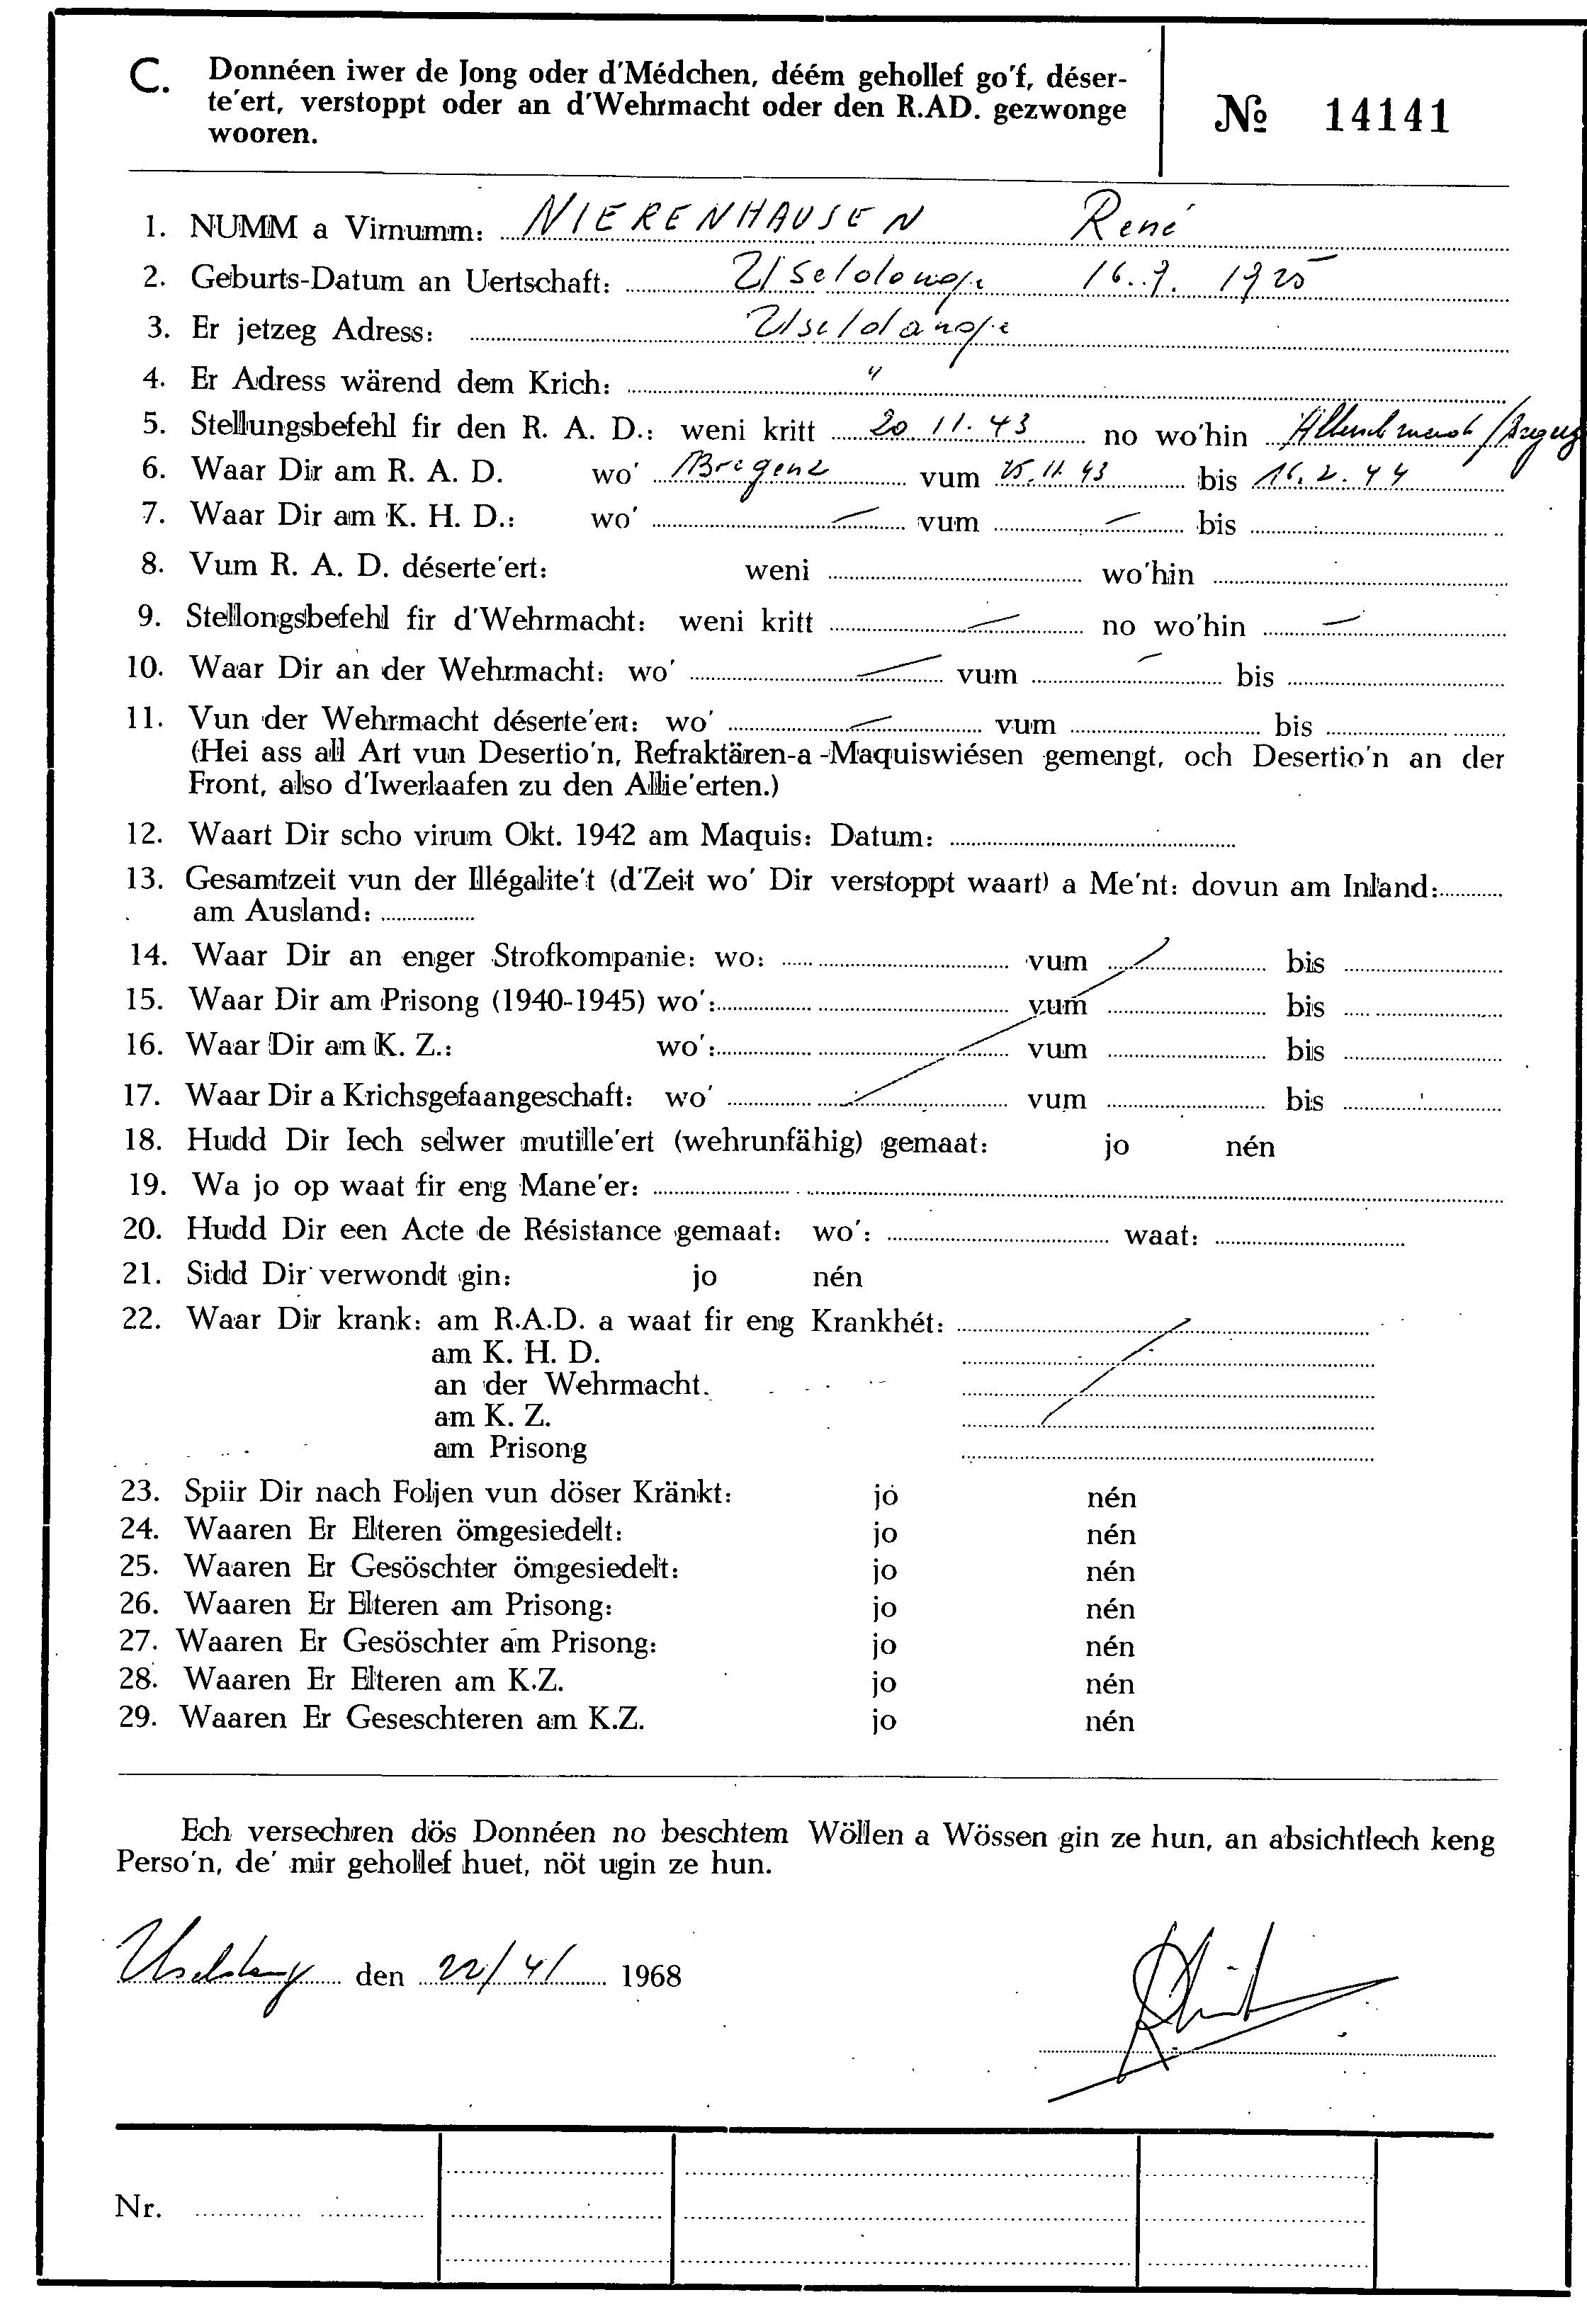 C. Donnéen iwer de Jong oder d'Médchen, déém gehollef go'f, déser-
te'ert, verstoppt oder an d'Wehrmacht oder den R.AD. gezwonge
wooren.
№ 14141
1. NUMM a Virnumm: NIERENHAUSEN René
2. Geburts-Datum an Uertschaft: Useldange 16.9. 1925
3. Er jetzeg Adress: Useldange
4. Er Adress wärend dem Krich: "
5. Stellungsbefehl fir den R. A. D.: weni kritt 20 11. 43 no wo'hin
6. Waar Dir am R. A. D. wo' Bregenz vum 25.11.43 bis 16.2.44
7. Waar Dir am K. H. D.: wo' — vum — bis
8. Vum R. A. D. déserte'ert: weni wo'hin
9. Stellongsbefehl fir d'Wehrmacht: weni kritt — no wo'hin —
10. Waar Dir an der Wehrmacht: wo' — vum — bis
11. Vun der Wehrmacht déserte'ert: wo' — vum bis
(Hei ass all Art vun Desertio'n, Refraktären-a-Maquiswiésen gemengt, och Desertio'n an der
Front, also d'Iwerlaafen zu den Allie'erten.)
12. Waart Dir scho virum Okt. 1942 am Maquis: Datum:
13. Gesamtzeit vun der Illégalite't (d'Zeit wo' Dir verstoppt waart) a Me'nt: dovun am Inland:
am Ausland:
14. Waar Dir an enger Strofkompanie: wo: vum bis
15. Waar Dir am Prisong (1940-1945) wo': vum bis
16. Waar Dir am K. Z.: wo': vum bis
17. Waar Dir a Krichsgefaangeschaft: wo' vum bis
18. Hudd Dir Iech selwer mutille'ert (wehrunfähig) gemaat: jo nén
19. Wa jo op waat fir eng Mane'er:
20. Hudd Dir een Acte de Résistance gemaat: wo': waat:
21. Sidd Dir verwondt gin: jo nén
22. Waar Dir krank: am R.A.D. a waat fir eng Krankhét:
am K. H. D.
an der Wehrmacht.
am K. Z.
am Prisong
23. Spiir Dir nach Foljen vun döser Kränkt: jo nén
24. Waaren Er Elteren ömgesiedelt: jo nén
25. Waaren Er Gesöschter ömgesiedelt: jo nén
26. Waaren Er Elteren am Prisong: jo nén
27. Waaren Er Gesöschter am Prisong: jo nén
28. Waaren Er Elteren am K.Z. jo nén
29. Waaren Er Geseschteren am K.Z. jo nén
Ech versechren dös Donnéen no beschtem Wöllen a Wössen gin ze hun, an absichtlech keng
Perso'n, de' mir gehollef huet, nöt ugin ze hun.
Useldang den 22/4/ 1968
Nr.